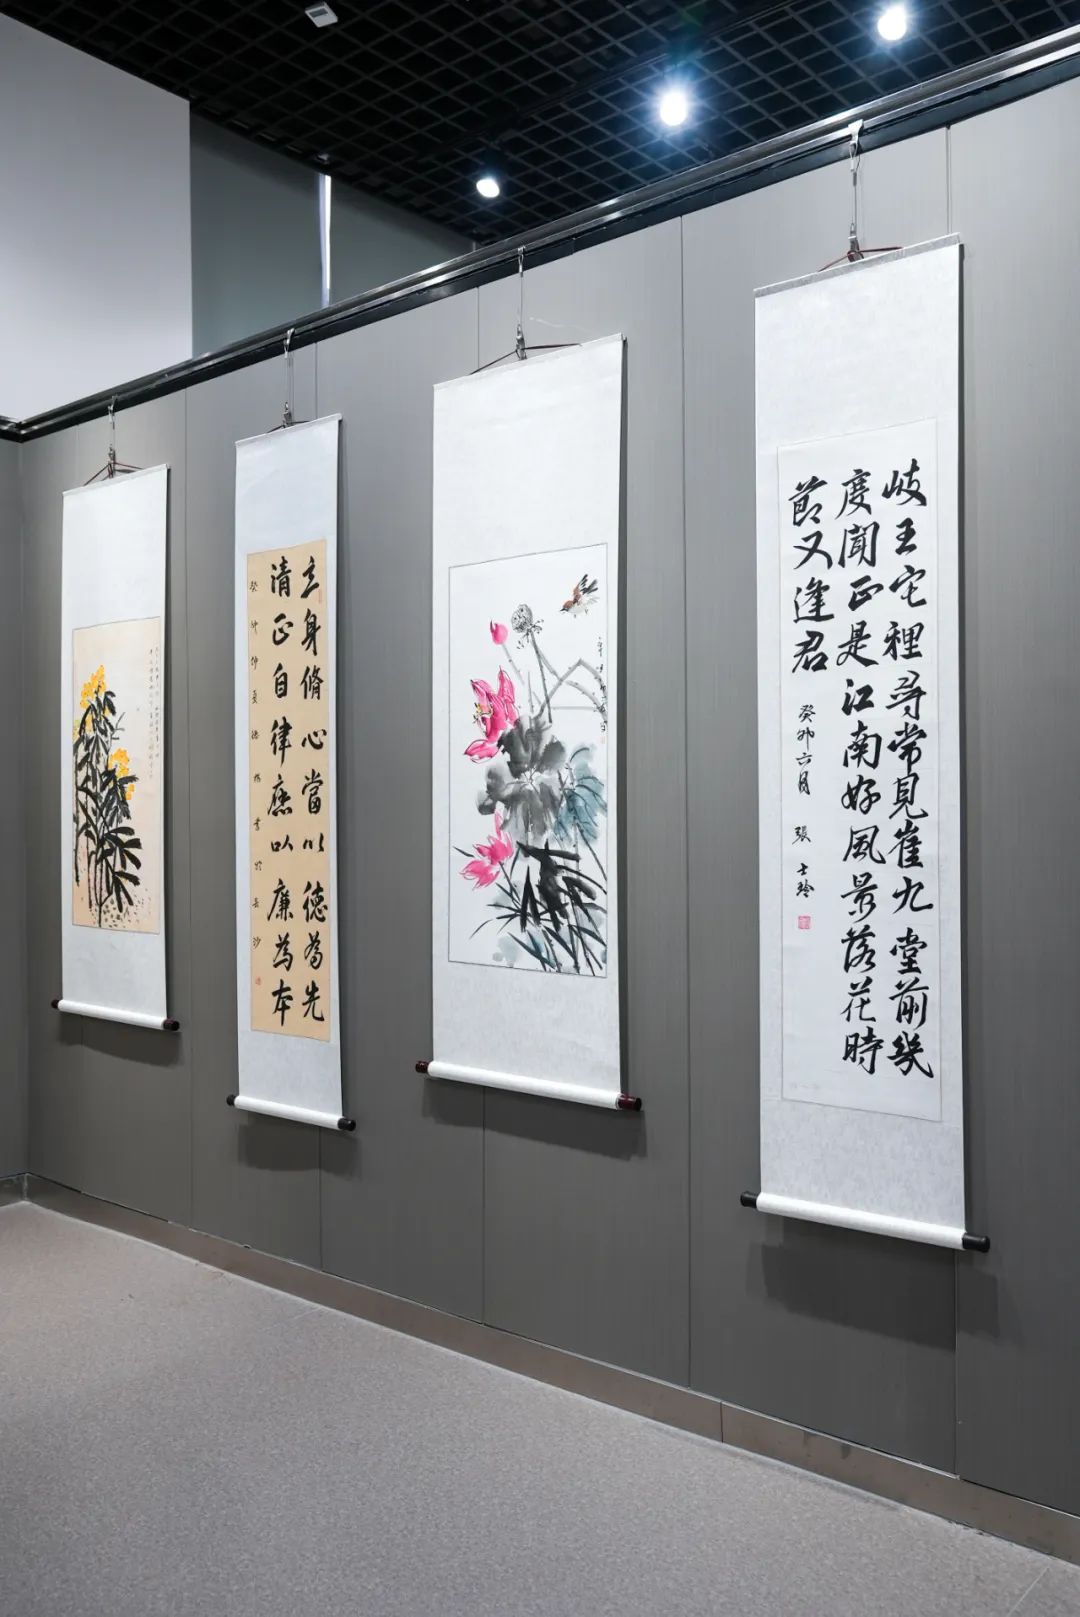 岐王宅裡尋常見崔九堂前幾
度聞正是江南好風景落花時
節又逢君
癸卯六月 張士玲
立身脩心當以德為先
清正自律應以廉為本
癸卯仲夏德書於長沙